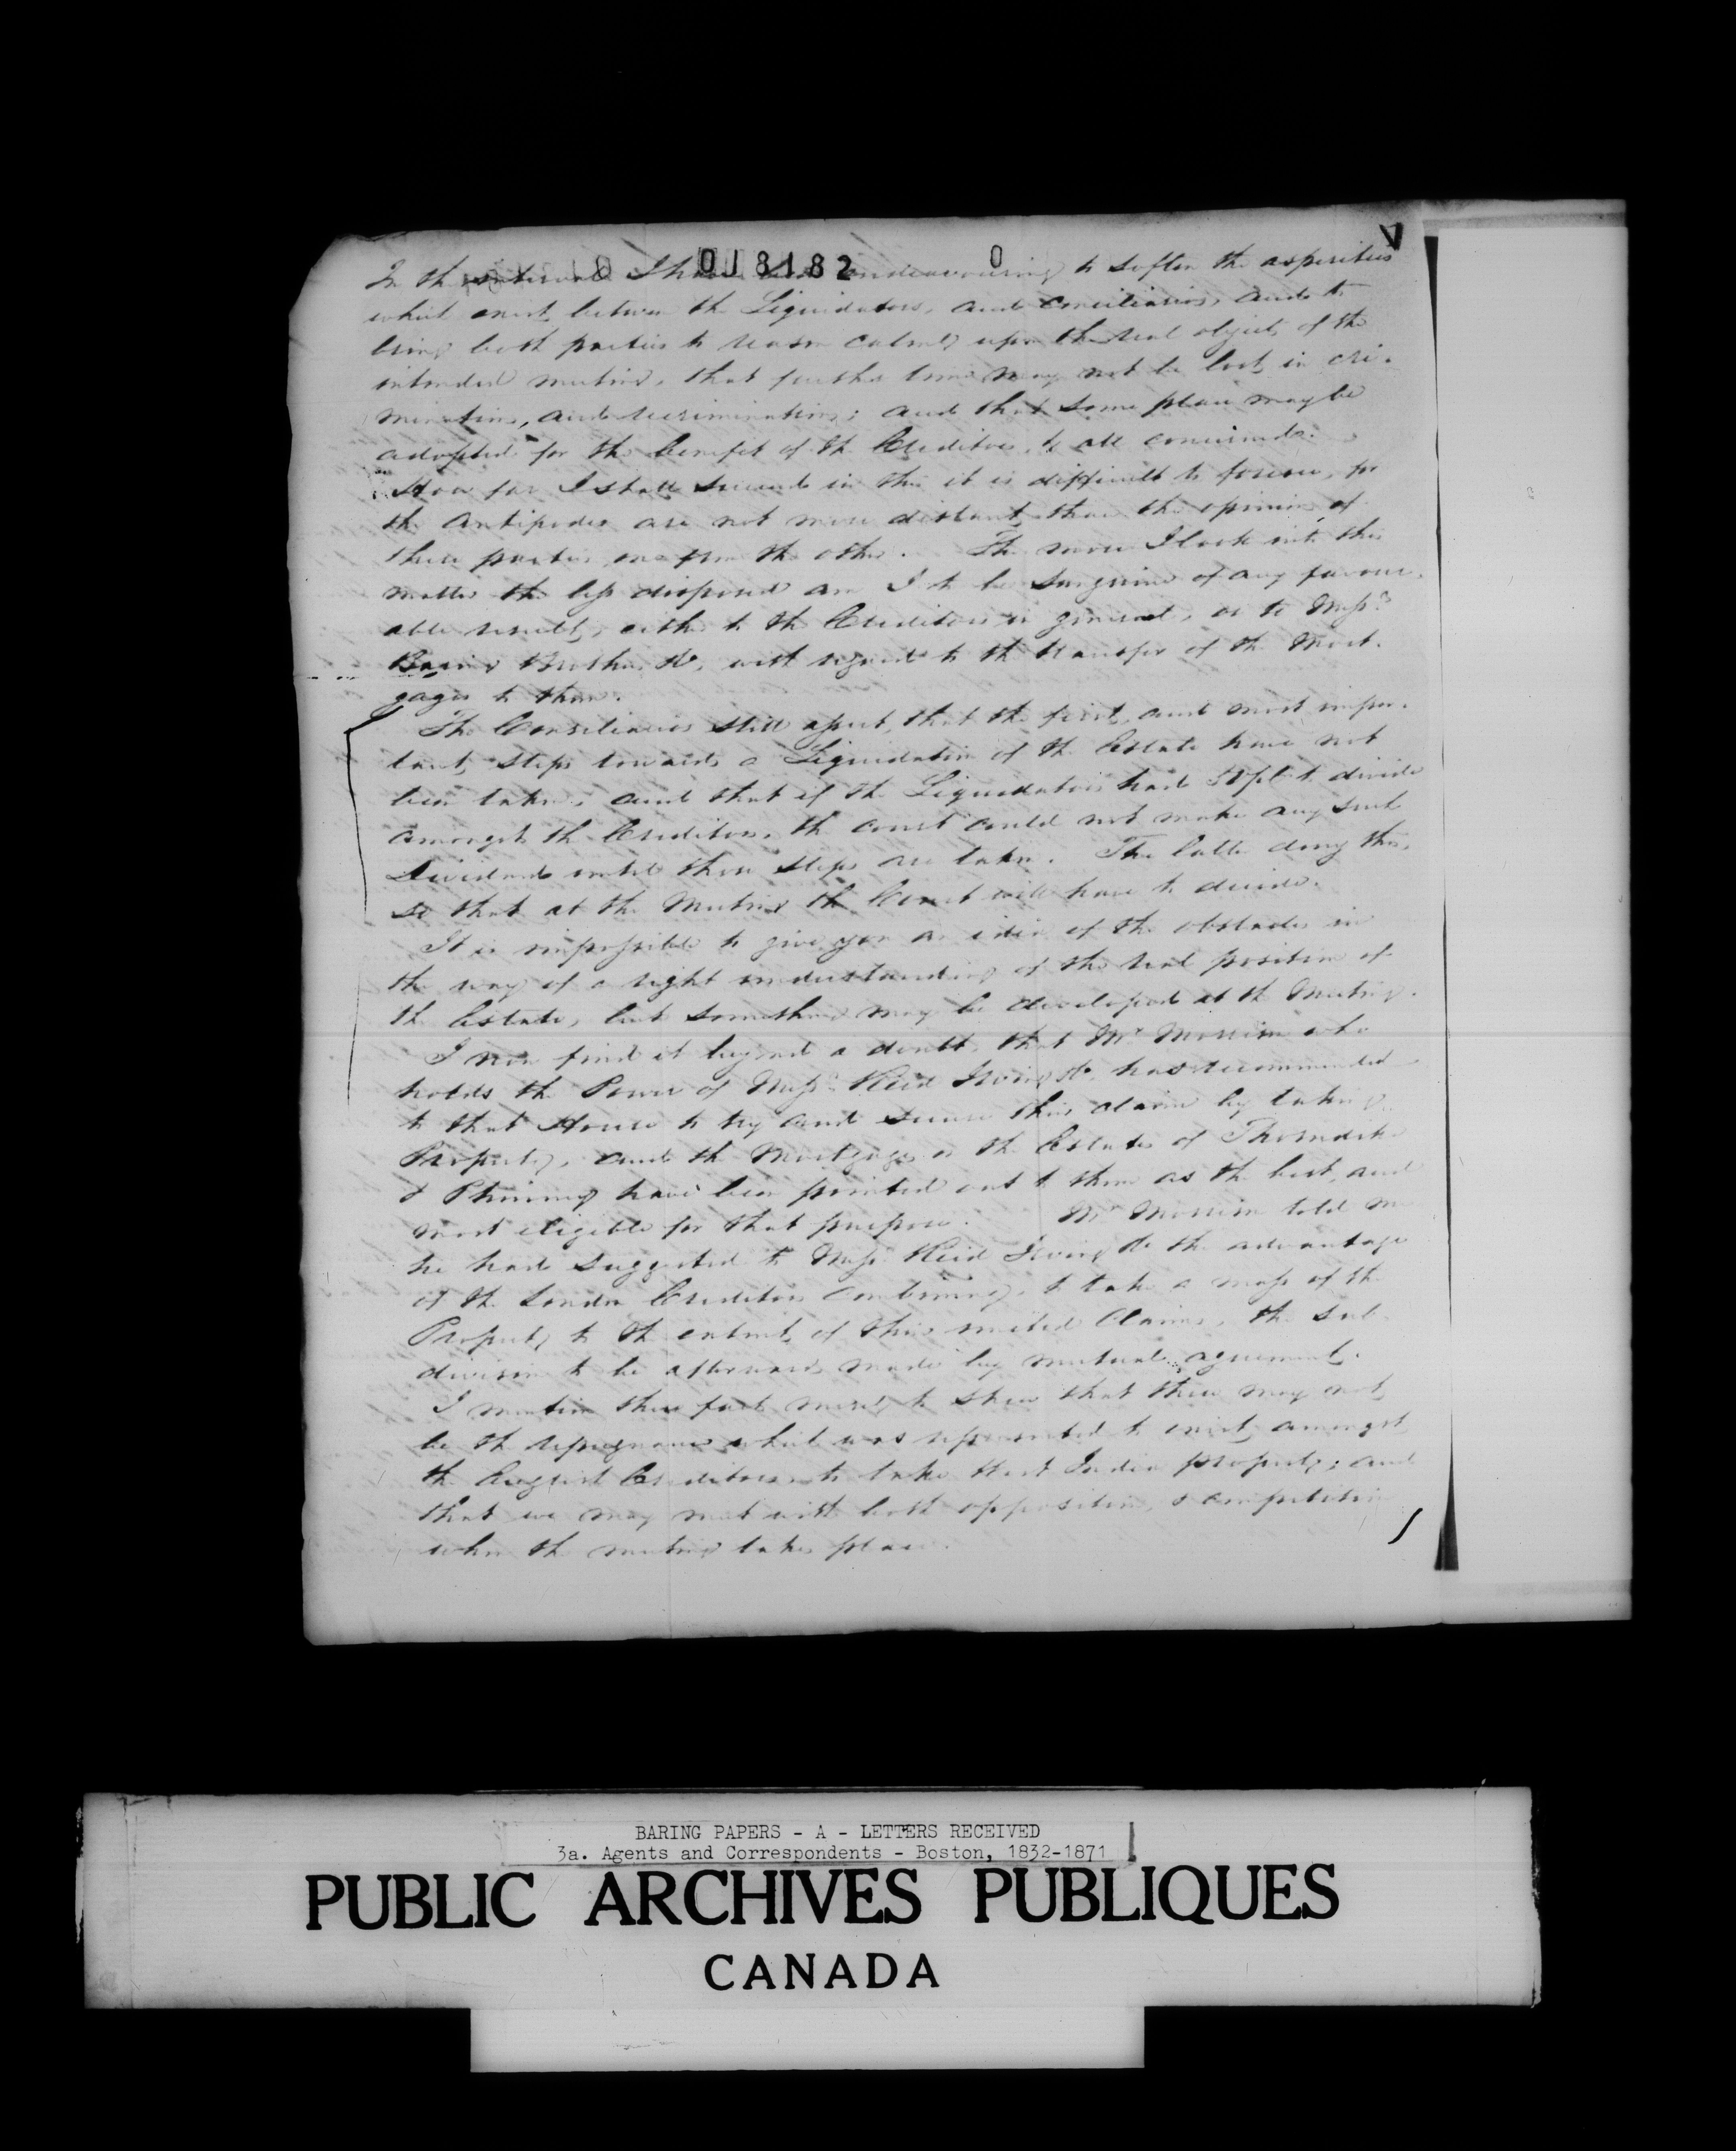 018182 0
In the interval I have been endeavouring to soften the asperities
which exist between the Liquidators, and Conciliarios, and to
bring both parties to reason calmly upon the real object of the
intended meeting, that further time may not be lost in cri-
minations, and recriminations; and that some plan may be
adopted for the benefit of the Creditors, & all concerned.
How far I shall succeed in this it is difficult to foresee, for
the antipodes are not more distant, than the opinions of
these parties one from the other. The more I look into this
matter the less disposed am I to be sanguine of any favour-
able result, either to the Creditors in general, or to Messrs
Baring Brothers & Co, with regard to the transfer of the Mort-
gages to them.
The Consiliarios still assert, that the first, and most impor-
tant, steps towards a Liquidation of the Estate have not
been taken; and that if the Liquidators had to divide
amongst the Creditors, the court could not make any such
Dividend until those steps are taken. The latter deny this,
so that at the Meeting the Court will have to decide.
It is impossible to give you an idea of the obstacles in
the way of a right understanding of the real position of
the Estate, but something may be developed at the Meeting.
I now find it beyond a doubt, that Mr Morrison who
holds the Power of Messrs Reid Irving & Co, has recommended
to that House to try and secure their claim by taking
Property, and the Mortgages on the Estates of Thorndike
& Phinney have been pointed out to them as the best, and
most eligible for that purpose. Mr Morrison told me
he had suggested to Messrs Reid Irving & Co the advantage
of the London Creditors combining, to take a mass of the
Property to the extent, of their united Claims, the sub-
division to be afterwards made by mutual agreement.
I mention these facts merely to shew that there may not,
be the repugnance which was represented to exist, amongst
the English Creditors to take West India property; and
that we may meet with both opposition, & competition
when the meeting takes place.
BARING PAPERS - A - LETTERS RECEIVED
3a. Agents and Correspondents - Boston, 1832-1871
PUBLIC ARCHIVES PUBLIQUES
CANADA